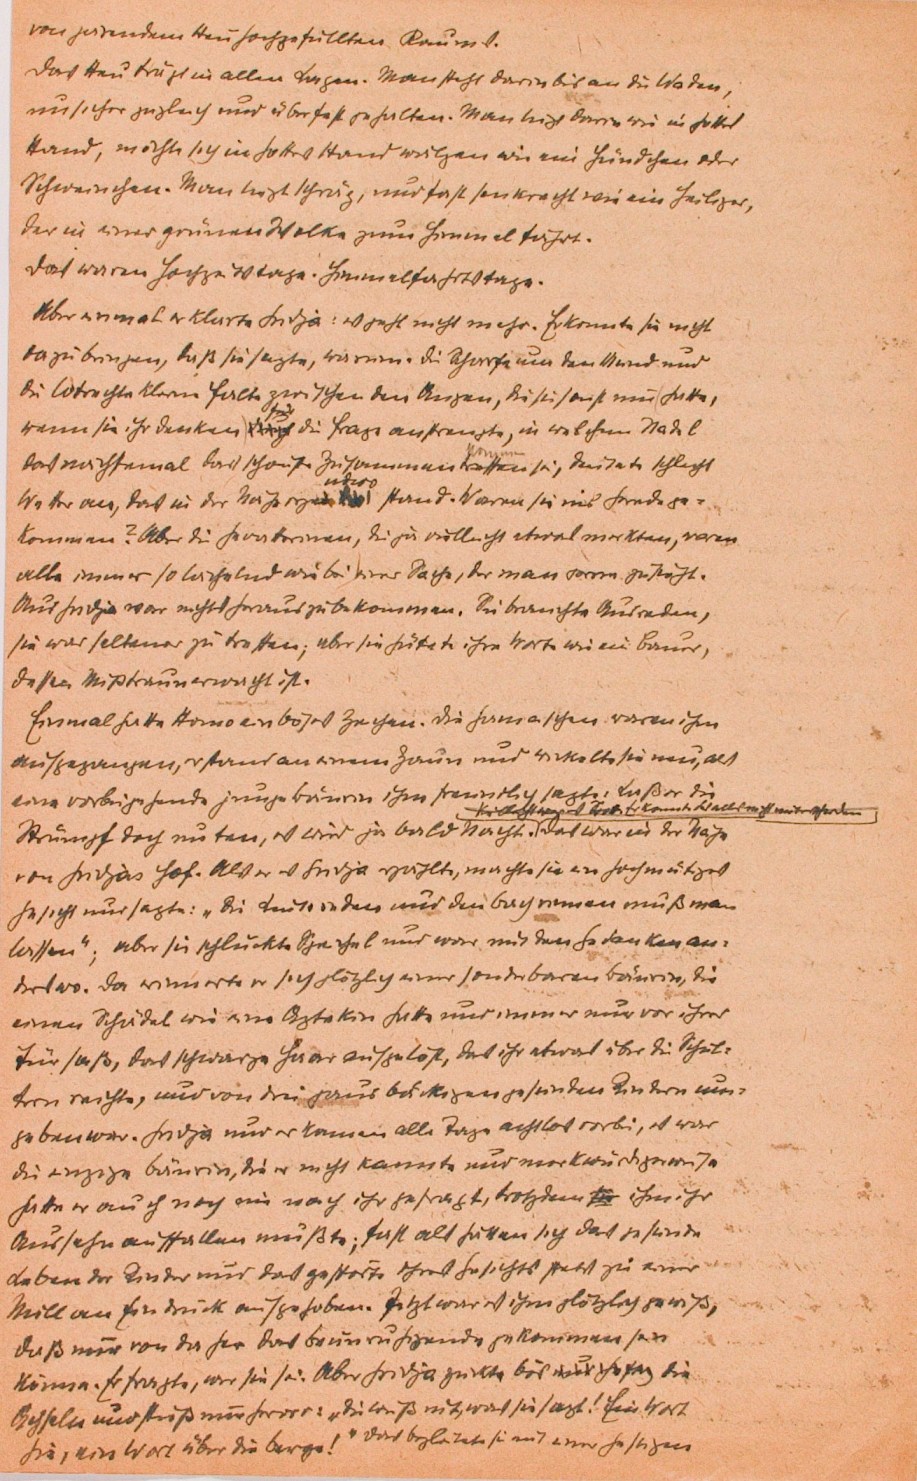 von gärendem Heu hochgefüllten Raums.
Das Heu trägt in allen Lagen. Man steht darin bis an die Waden,
unsicher zugleich und überfest gehalten. Man liegt darin wie in Gottes
Hand, möchte sich in Gottes Hand wälzen wie ein Hündchen oder
Schweinchen. Man liegt schräg, und fast senkrecht wie ein Heiliger,
der in einer grünen Wolke zum Himmel fährt.
Das waren Hochzeitstage. Himmelfahrtstage.
Aber einmal erklärte Gridja: es geht nicht mehr. Er konnte sie nicht
dazu bringen, daß sie sagte, warum. Die Schärfe um den Mund und
die lotrechte kleine Falte zwischen den Augen, die sie sonst nur hatte,
wenn sie ihr Denken für die Frage anstrengte, in welchem Stadel
das nächstemal das schönste Zusammenkommen sei, deutete schlecht
Wetter an, das in der Nähe irgendwo stand. Waren sie ins Gerede ge=
kommen? Aber die Gevatterinen, die ja vielleicht etwas merkten, waren
alle immer so lächelnd wie bei einer Sache, der man gerne zusieht.
Aus Gridja war nichts herauszubekommen. Sie brauchte Ausreden,
sie war seltener zu treffen; aber sie hütete ihre Worte wie ein Bauer,
dessen Mißtraun erwacht ist.
Einmal hatte Homo ein böses Zeichen. Die Gamaschen waren ihm
aufgegangen, er stand an einem Zaun und wickelte sie neu, als
eine vorbeigehende junge Bäurin ihm freundlich sagte: Laß er die
Strümpf doch unten, es wird ja bald Nacht. Das war in der Nähe
von Gridjas Hof. Als er es Gridja erzählte, machte sie ein hochmütiges
Gesicht und sagte: „Die Leute reden und den Bach rinnen muß man
lassen"; aber sie schluckte Speichel und war mit den Gedanken an=
derswo. Da erinnerte er sich plötzlich einer sonderbaren Bäurin, die
einen Schädel wie eine Aztekin hatte und immer nur vor ihrer
Tür saß, das schwarze Haar aufgelöst, das ihr etwas über die Schul=
tern reichte, und von drei pausbäckigen gesunden Kindern um=
geben war. Gridja und er kamen alle Tage achtlos vorbei, es war
die einzige Bäurin, die er nicht kannte und merkwürdigerweise
hatte er auch noch nie nach ihr gefragt, trotzdem ihm ihr
Aussehn auffallen mußte; fast als hätten sich das gesunde
Leben der Kinder und das gestörte ihres Gesichts stets zu einer
Null an Eindruck aufgehoben. Jetzt war es ihm plötzlich gewiß,
daß nur von da her das Beunruhigende gekommen sein
könne. Er fragte, wer sie sei. Aber Gridja zuckte bös die
Achseln und stieß nur hervor: „Die weiß nit, was sie sagt! Ein Wort
hie, ein Wort über die Berge!" Das begleitete sie mit einer heftigen